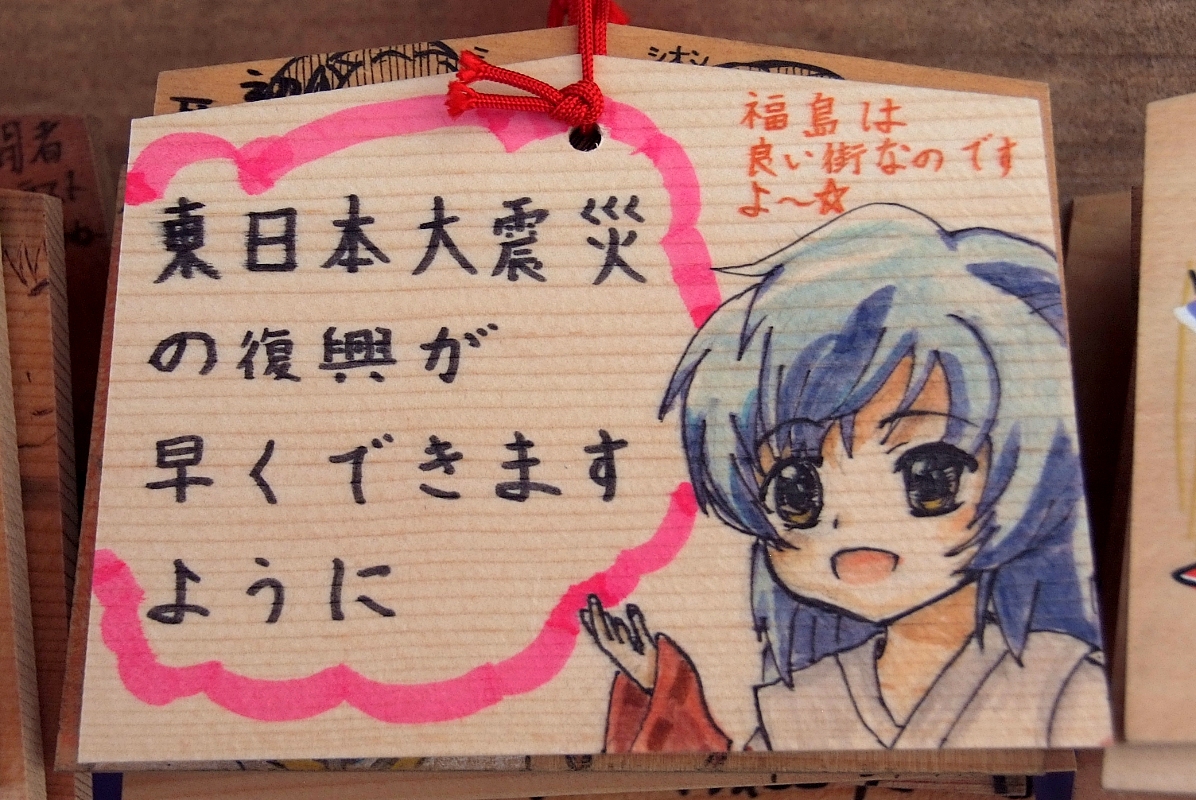 シオン
福島は
良い街なのです
よ～☆
東日本大震災
の復興が
早くできます
ように
者